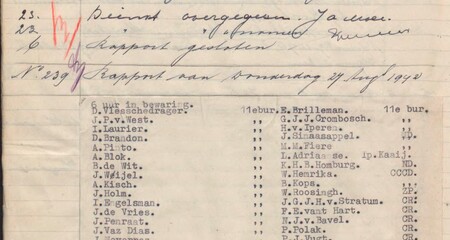 23. Dienst overgegeven. Ja
23.
6 Rapport gesloten
No 239 Rapport van Donderdag 27 Augs 1942
6 uur in bewaring.
D. Vleeschedrager. 11ebur. E. Brilleman. 11e bur.
J.P.v.West. ,, G.J.J. Crombosch. ,,
I. Laurier. ,, H.v. Iperen. ,,
D. Brandon. ,, J. Sinaasappel.
A. Pinto. ,, M.M. Fiere ,,
A. Blok. ,, L. Adriaanse Ip. Kaaij.
B. de Wit. ,, K.H.B. Homburg. ND.
J. Weijel. ,, W. Henrika. CCCD.
A. Kisch. ,, B. Kops. ,,
J. Holm. ,, W. Roosingh. ZP.
I. Engelsman. ,, J.G.J.H.v. Stratum. CR.
J. de Vries. ,, F.E. vant Hart. CR.
J. Penraat. ,, N.J.v. Bavel. CR.
J. Vaz Dias ,, P. Polak. CR.
P. Vugt. CR.